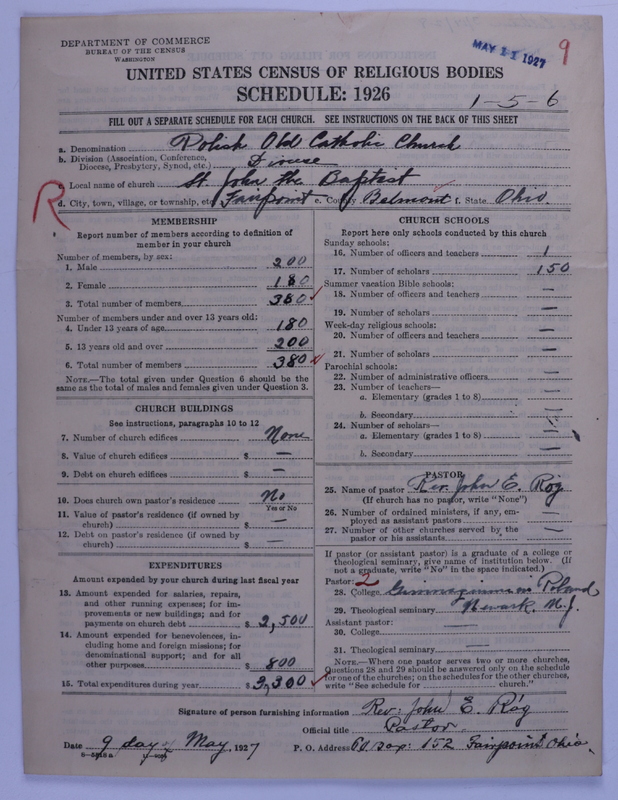 DEPARTMENT OF COMMERCE
BUREAU OF THE CENSUS
WASHINGTON
MAY 11 1927
9
UNITED STATES CENSUS OF RELIGIOUS BODIES
SCHEDULE: 1926
1-5-6
FILL OUT A SEPARATE SCHEDULE FOR EACH CHURCH. SEE INSTRUCTIONS ON THE BACK OF THIS SHEET
a. Denomination Polish Old Catholic Church
b. Division (Association, Conference, Diocese, Presbytery, Synod, etc.)
c. Local name of church St. John the Baptist
R
d. City, town, village, or township, etc. Fairpoint e. County Belmont f. State Ohio.
MEMBERSHIP
Report number of members according to definition of
member in your church
Number of members, by sex:
1. Male 200
2. Female 180
3. Total number of members 380
Number of members under and over 13 years old:
4. Under 13 years of age 180
5. 13 years old and over 200
6. Total number of members 380
NOTE.—The total given under Question 6 should be
the same as the total of males and females given under Question 3.
CHURCH BUILDINGS
See instructions, paragraphs 10 to 12
7. Number of church edifices None
8. Value of church edifices $ —
9. Debt on church edifices $ —
10. Does church own pastor's residence No
Yes or No
11. Value of pastor's residence (if owned by
church) $ —
12. Debt on pastor's residence (if owned by
church) $ —
EXPENDITURES
Amount expended by your church during last fiscal year
13. Amount expended for salaries, repairs,
and other running expenses; for im-
provements or new buildings; and for
payments on church debt $ 2,500
14. Amount expended for benevolences, in-
cluding home and foreign missions; for
denominational support; and for all
other purposes $ 800
15. Total expenditures during year $ 3,300
CHURCH SCHOOLS
Report here only schools conducted by this church
Sunday schools:
16. Number of officers and teachers 1
17. Number of scholars 150
Summer vacation Bible schools:
18. Number of officers and teachers —
19. Number of scholars —
Week-day religious schools:
20. Number of officers and teachers —
21. Number of scholars —
Parochial schools:
22. Number of administrative officers —
23. Number of teachers—
a. Elementary (grades 1 to 8) —
b. Secondary —
24. Number of scholars—
a. Elementary (grades 1 to 8) —
b. Secondary —
PASTOR
25. Name of pastor Rev. John E. Róg
(If church has no pastor, write "None")
26. Number of ordained ministers, if any, em-
ployed as assistant pastors —
27. Number of other churches served by the
pastor or his assistants —
If pastor (or assistant pastor) is a graduate of a college or
theological seminary, give name of institution below. (If
not a graduate, write "No" in the space indicated.)
Pastor: 2
28. College in Poland
29. Theological seminary Newark, N.J.
Assistant pastor:
30. College —
31. Theological seminary —
NOTE.—Where one pastor serves two or more churches,
Questions 28 and 29 should be answered only on the schedule
for one of the churches; on the schedules for the other churches,
write "See schedule for church."
Signature of person furnishing information Rev: John E. Róg
Official title Pastor.
Date 9 day of May, 1927 P. O. Address 152 Fairpoint Ohio.